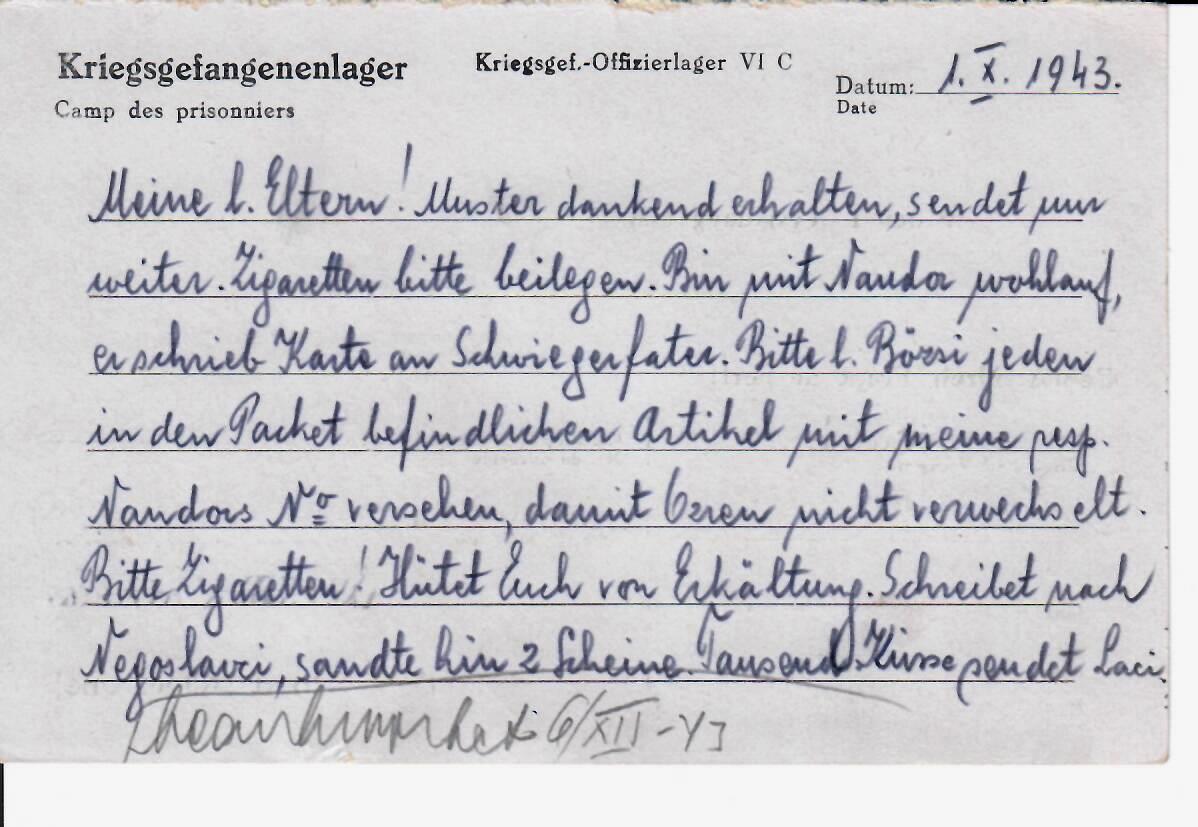 Kriegsgefangenenlager
Camp des prisonniers
Kriegsgef.-Offizierlager VI C
Datum: 1. X. 1943.
Date
Meine l. Eltern! Muster dankend erhalten, sendet nur
weiter. Zigaretten bitte beilegen. Bin mit Nandor wohlauf,
er schrieb Karte an Schwiegerfater. Bitte l. Börsi jeden
in den Packet befindlichen Artikel mit meine resp.
Nandors No versehen, damit nicht verwechselt.
Bitte Zigaretten! Hütet Euch von Erkältung. Schreibet nach
Negoslavci, sandte hin 2 Scheine. Tausend Küsse sendet Laci.
6/XII-43